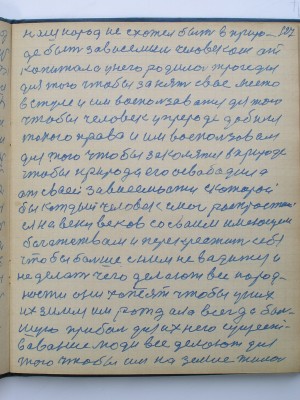 ному народ не схотел быть в приро- 107
де быть зависемым человеком от
капитала у него родилося
для того чтобы занять свое место
в стуле и им воспользоватся для того
чтобы человек у природе добился
такого права и им воспользовал
для того чтобы закалятся в природе
чтобы природа его освободила
от своей зависемости с которой
бы каждый человек смог
ся на веки веков со своим имеющим
богатством и перекрестит себя
чтобы больше с ним не водится и
не делать чего делают все народ-
ности они хотят чтобы у них
их земля им рождала всегда боль-
шую прибыл для их него сущест-
вование люди все делают для
того чтобы им на земле жилося